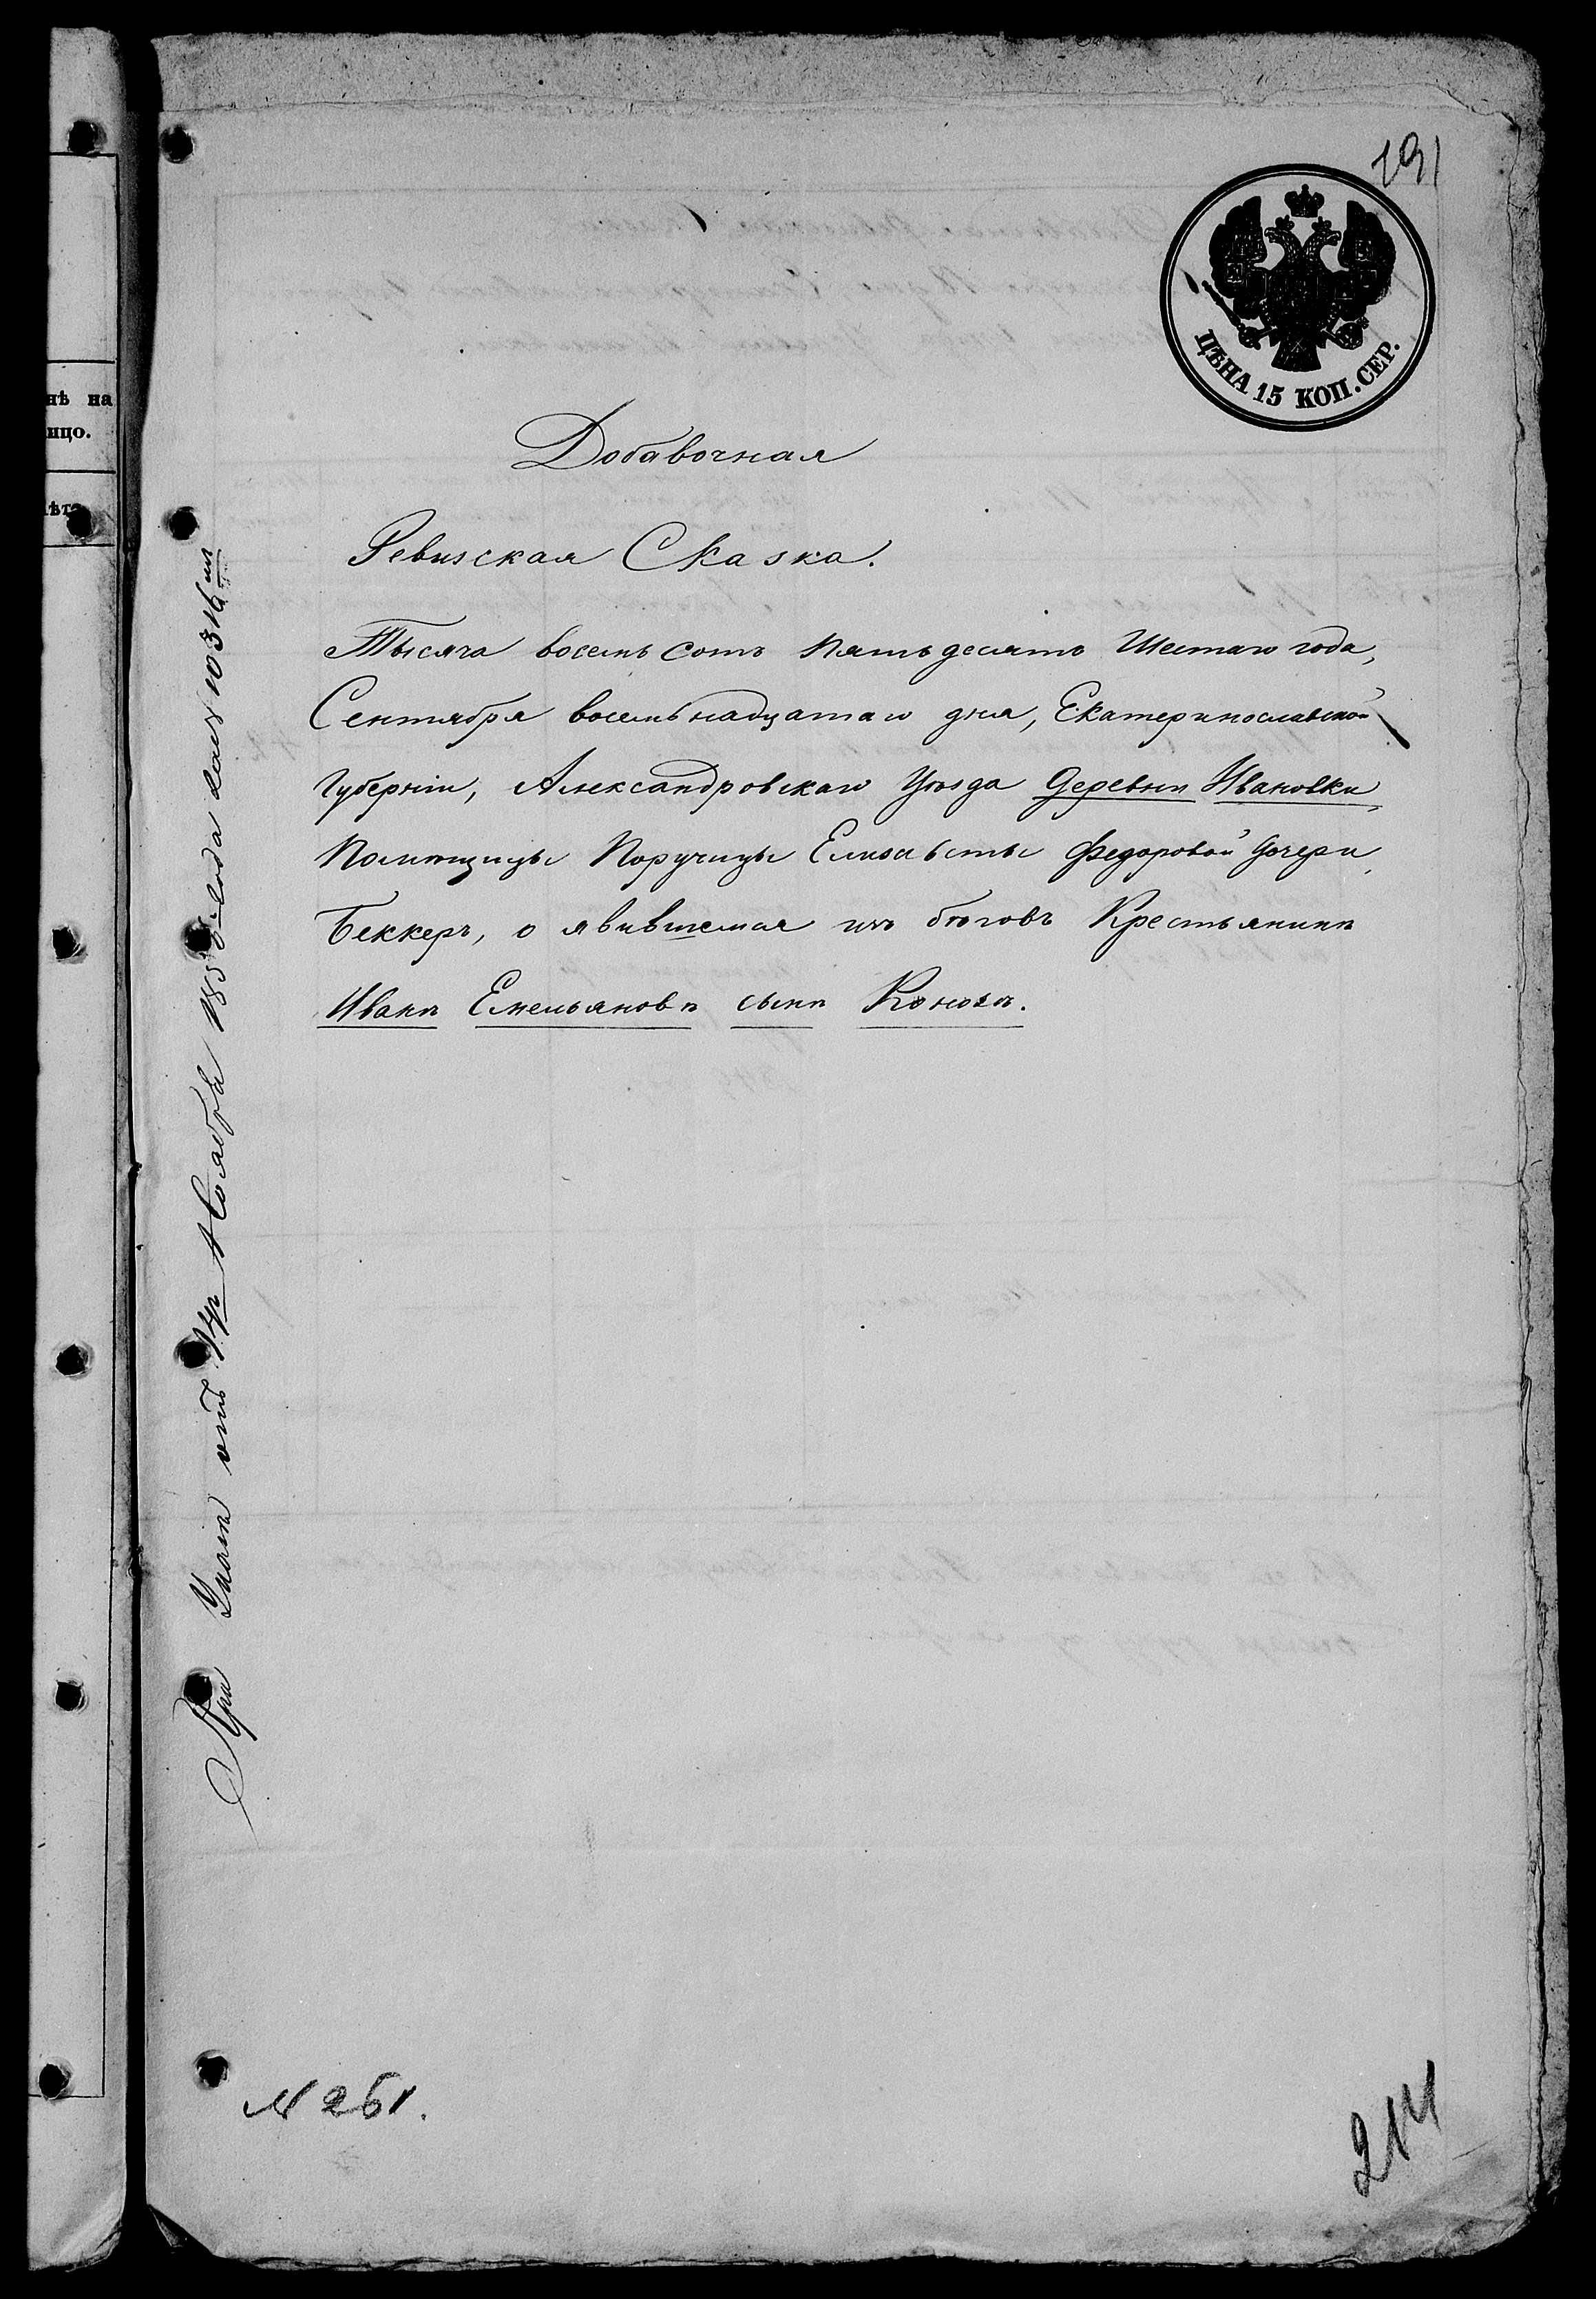 191
ЦѢНА 15 КОП. СЕР.
нѣ на
ицо.
Добавочная
Ревизская Сказка.
Тысяча восемь сотъ пятьдесятъ Шестаго года,
Сентября восемьнадцатаго дня, Екатеринославской
Губерніи, Александровскаго Уѣзда Деревни Ивановки
Помѣщицы Поручицы Елисаветы Федоровой дочери
Беккеръ, о явившемся изъ бѣговъ Крестьянинѣ
Иванѣ Емельяновѣ сынѣ
При Указѣ отъ Ноября года за № 10316
№ 261.
214